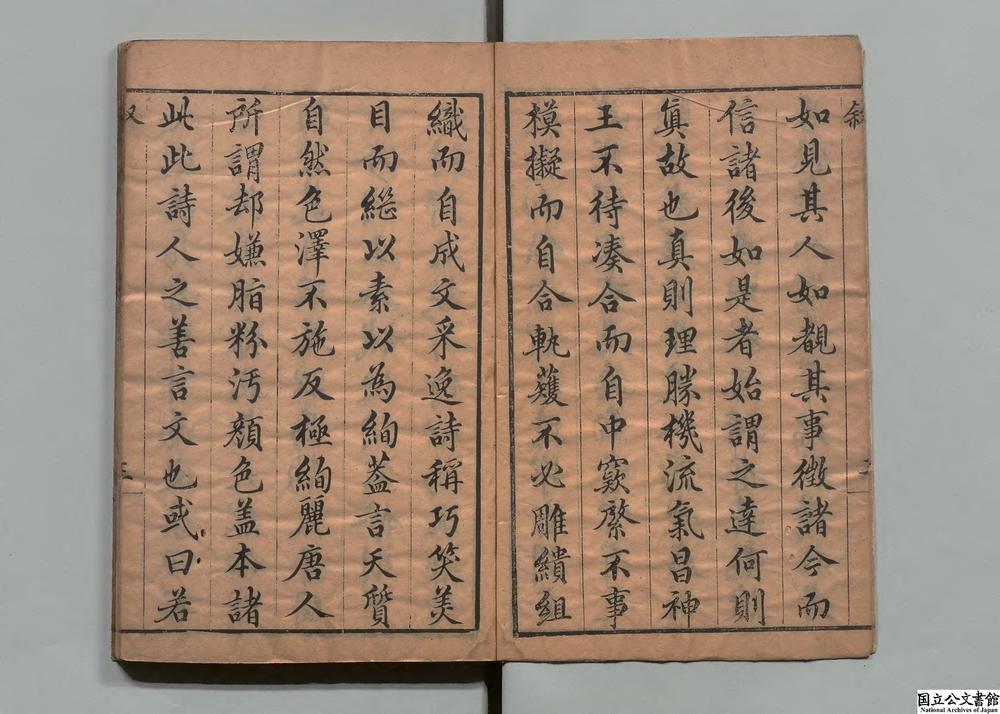 如見其人如覩其事徵諸今而
信諸後如是者始謂之達何則
眞故也真則理勝機流氣昌神
王不待凑合而自中窾綮不事
模擬而自合軌蒦不必雕繢組
織而自成文采逸詩稱巧笑美
目而繼以素以為絢葢言天質
自然色澤不施反極絢麗唐人
所謂却嫌脂粉汚顏色盖本諸
此此詩人之善言文也或曰若
国立公文書館
National Archives of Japan